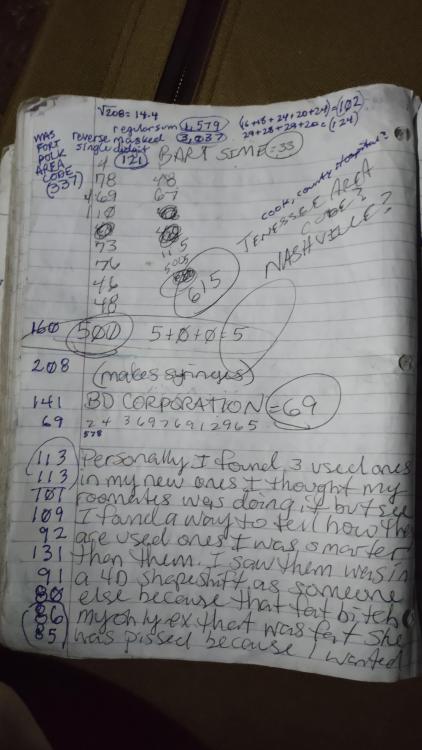 √208=14.4
regular sum 1,579
(16+18+24+20+24)=(102)
reverse masked 3,037
29+28+29+20=(124)
single digit (121)
WAS
FORT
POLK
AREA
CODE
(337)
BART SIME=33
cook, county Hospital?
TENESSEE AREA
CODE?
NASHVILLE?
4
78 48
469 67
110
73
115
76 5005
46 615
48
160 500 5+0+0=5
208 (makes syringes)
141 BD CORPORATION=69
69 24 36976912965
578
113 Personally I found 3 used ones
113 in my new ones I thought my
101 roomates was doing it but see
109 I found a way to tell how they
92 are used ones I was smarter
131 than them. I saw them was in
91 a 4D shapeshift as someone
80 else because that fat bitch
86 my only ex that was fat she
85 was pissed because I wanted